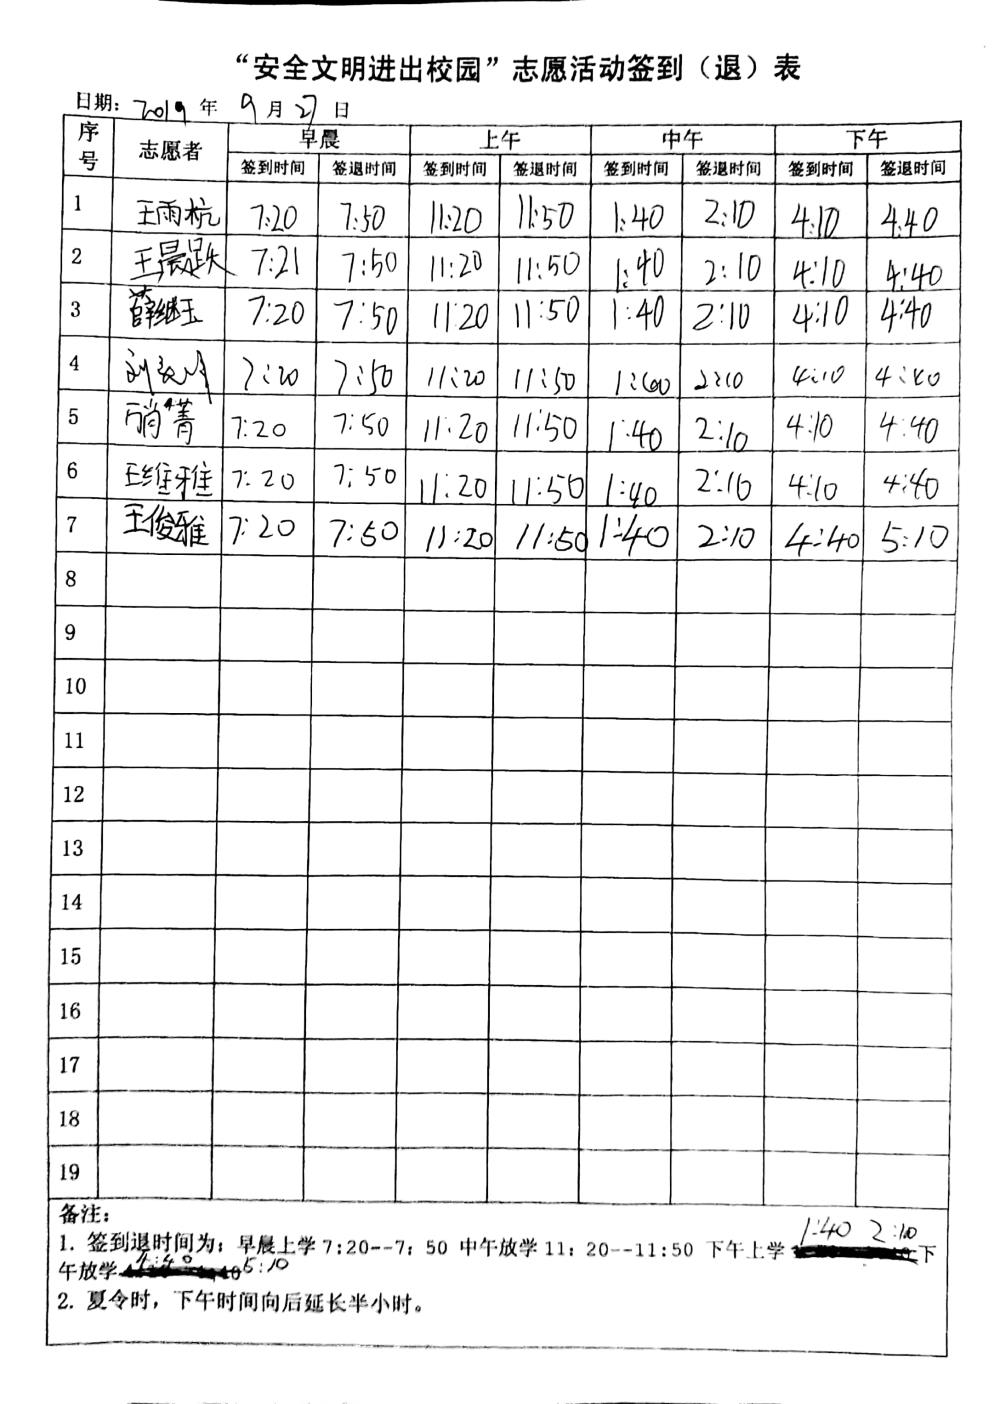 “安全文明进出校园”志愿活动签到（退）表
日期：2019 年 9 月 27 日
序号 志愿者 早晨 上午 中午 下午
签到时间 签退时间 签到时间 签退时间 签到时间 签退时间 签到时间 签退时间
1 王雨杭 7:20 7:50 11:20 11:50 1:40 2:10 4:10 4:40
2 王晨跌 7:21 7:50 11:20 11:50 1:40 2:10 4:10 4:40
3 薛继玉 7:20 7:50 11:20 11:50 1:40 2:10 4:10 4:40
4 7:20 7:50 11:20 11:50 2:10 4:10 4:40
5 7:20 7:50 11:20 11:50 1:40 2:10 4:10 4:40
6 王维雅 7:20 7:50 11:20 11:50 1:40 2:10 4:10 4:40
7 王俊雅 7:20 7:50 11:20 11:50 1:40 2:10 4:40 5:10
8
9
10
11
12
13
14
15
16
17
18
19
备注：
1. 签到退时间为：早晨上学 7:20--7：50 中午放学 11：20--11:50 下午上学 1:40 2:10 下
午放学 4:40 5:10
2. 夏令时，下午时间向后延长半小时。